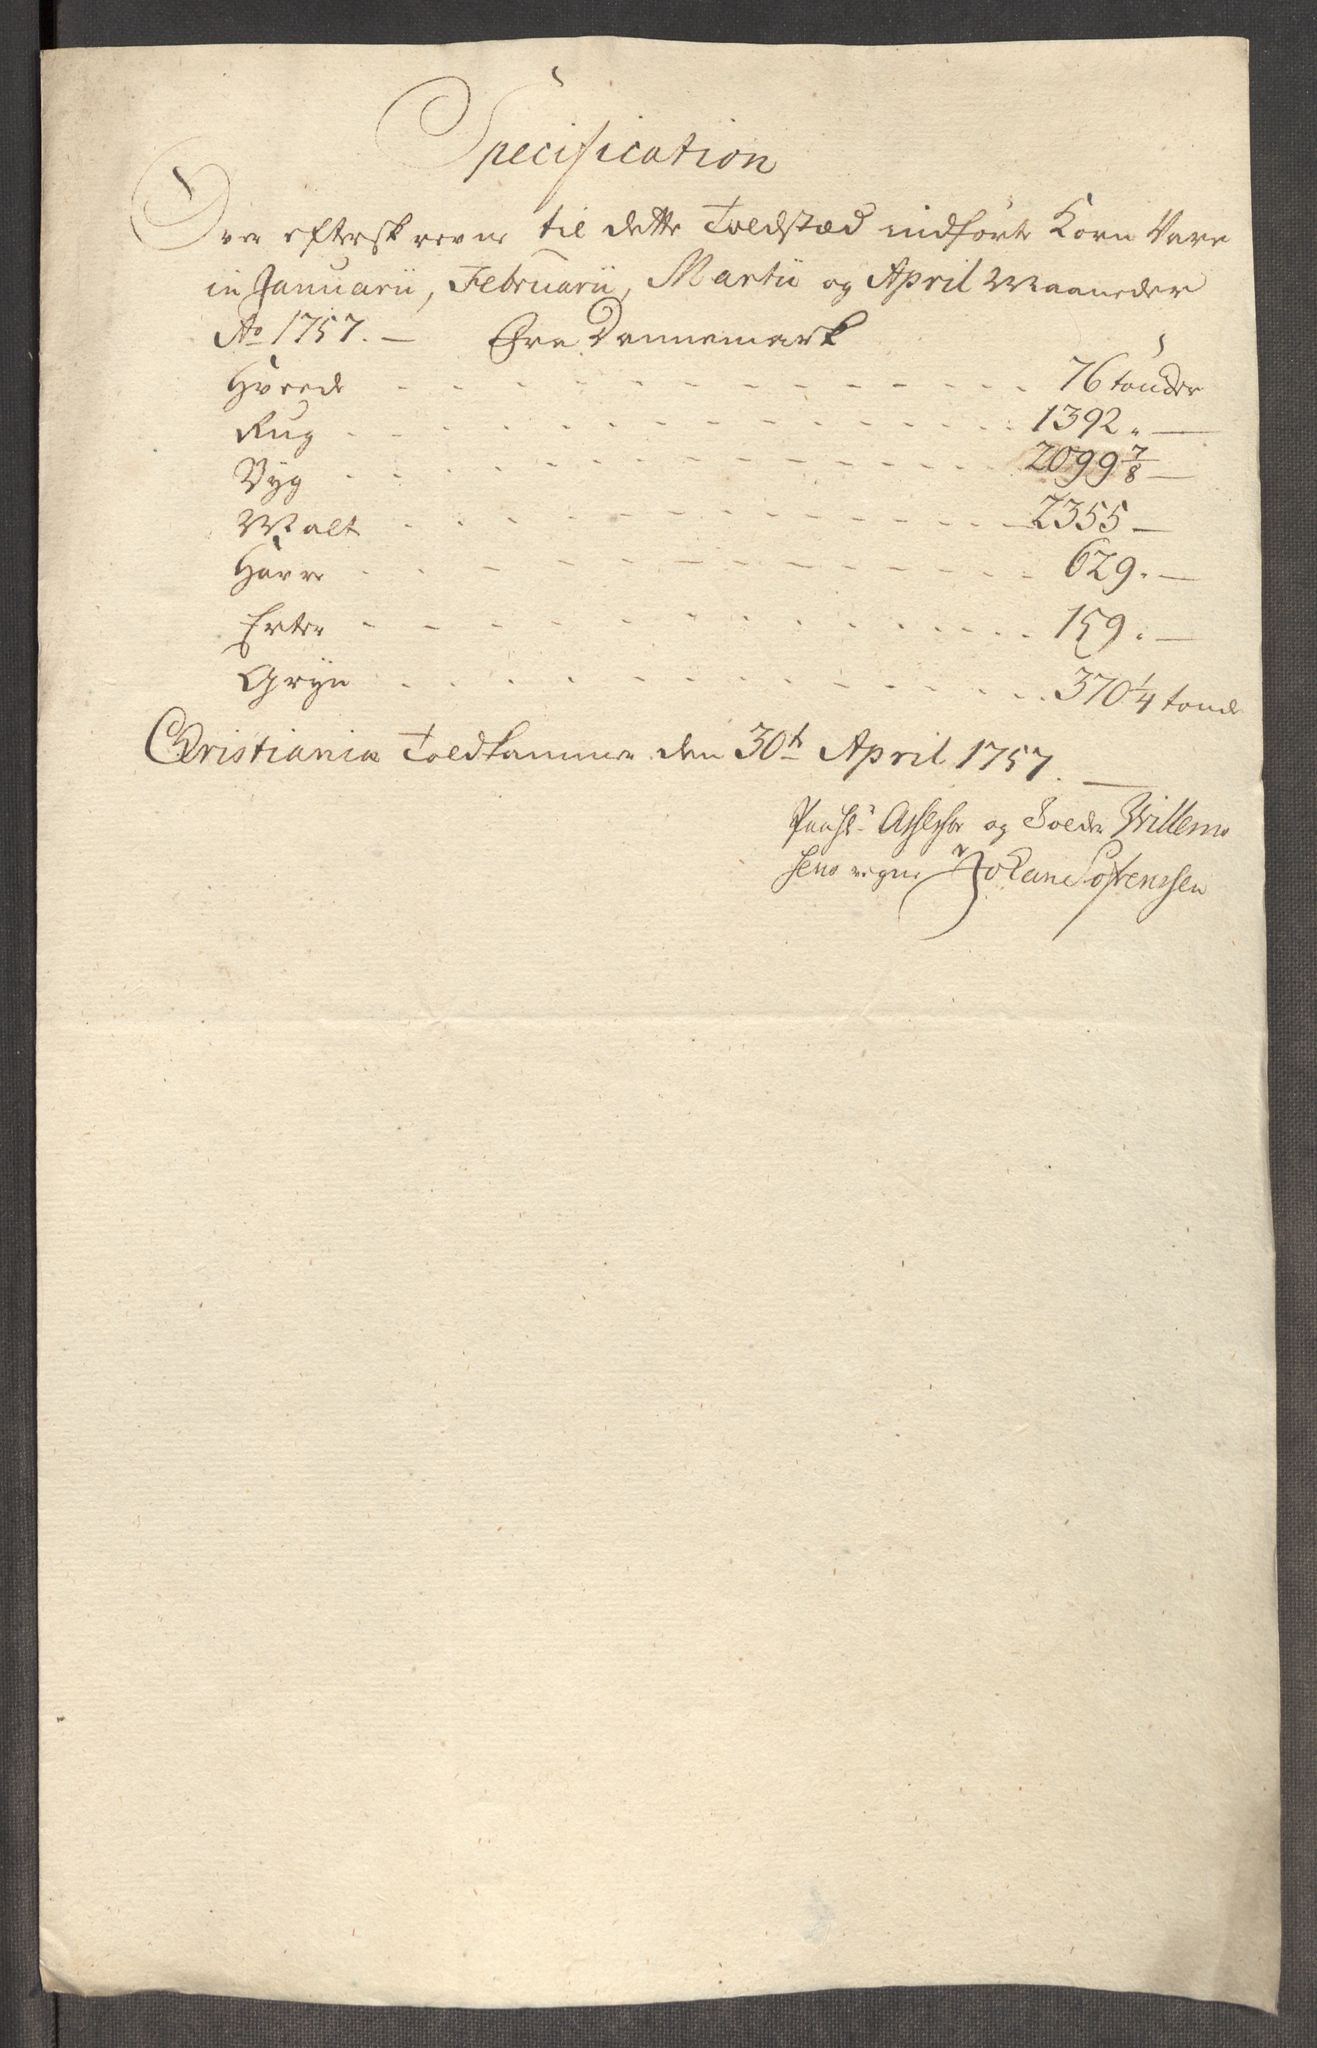 Specification
Over efterskrevne til dette Toldsted indførte Korn Vare
in Januarii, Februarii, Martii og April Maaneder
Ao 1757. — Fra Dannemark
Hvede - - - 76 tønder
Rug - - - 1392 „ —
Byg - - - 2099 7/8 —
Malt - - - 2355 —
Havre - - - 629. —
Erter - - - 159. —
Gryn - - - 370 1/4 tønde
Christiania Toldkammer den 30te April 1757. —
Paa Hr Assessor og Tolder Willem
sens vegne Johan Sørenssen